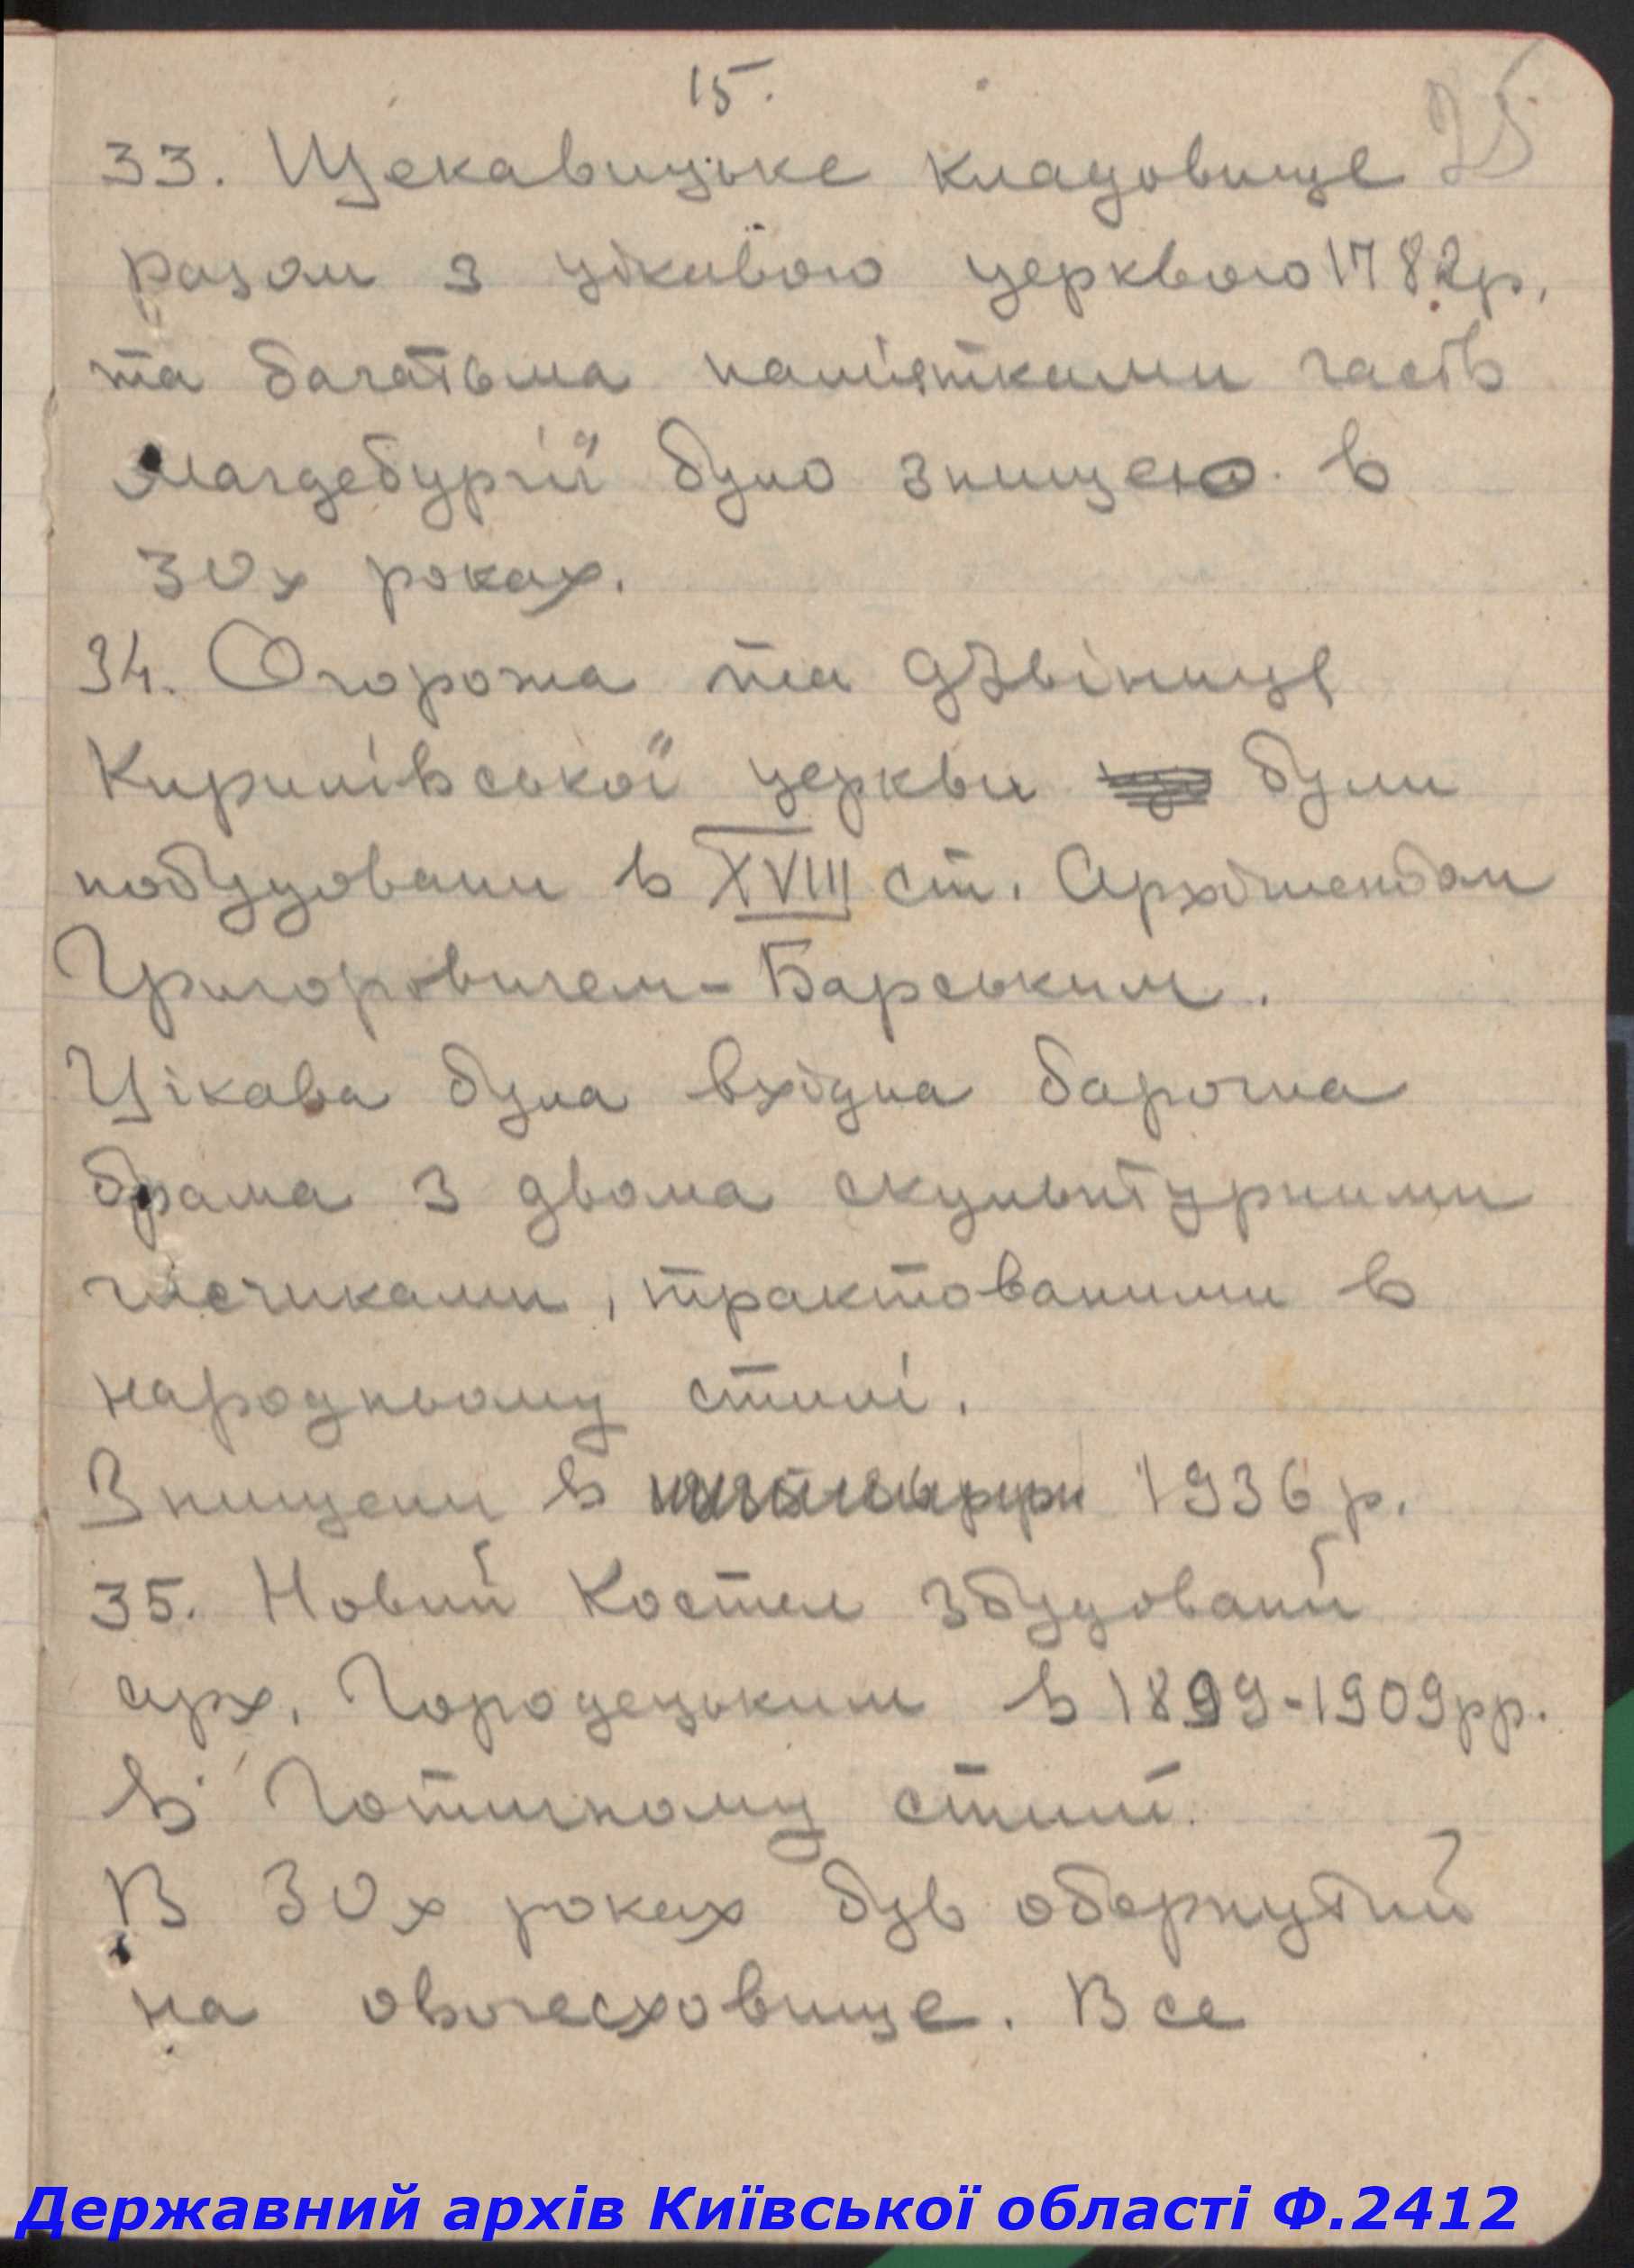 15.
25
33. Щекавицьке кладовище
разом з цікавою церквою 1782р.
та багатьма пам'ятками часів
Магдебургії було знищено в
30х роках.
34. Огорожа та дзвіниця
Кирилівської церкви були
побудовани в XVIII ст. Архітектом
Григоровичем-Барським.
Цікава була вхідна барочна
брама з двома скульптурними
, трактованими в
народньому стилі.
Знищени в 1936 р.
35. Новий Костел збудований
арх. Городецьким в 1899-1909рр.
в Готичному стилі.
В 30х роках був обернутий
на овочесховище. Все
Державний архів Київської області Ф.2412